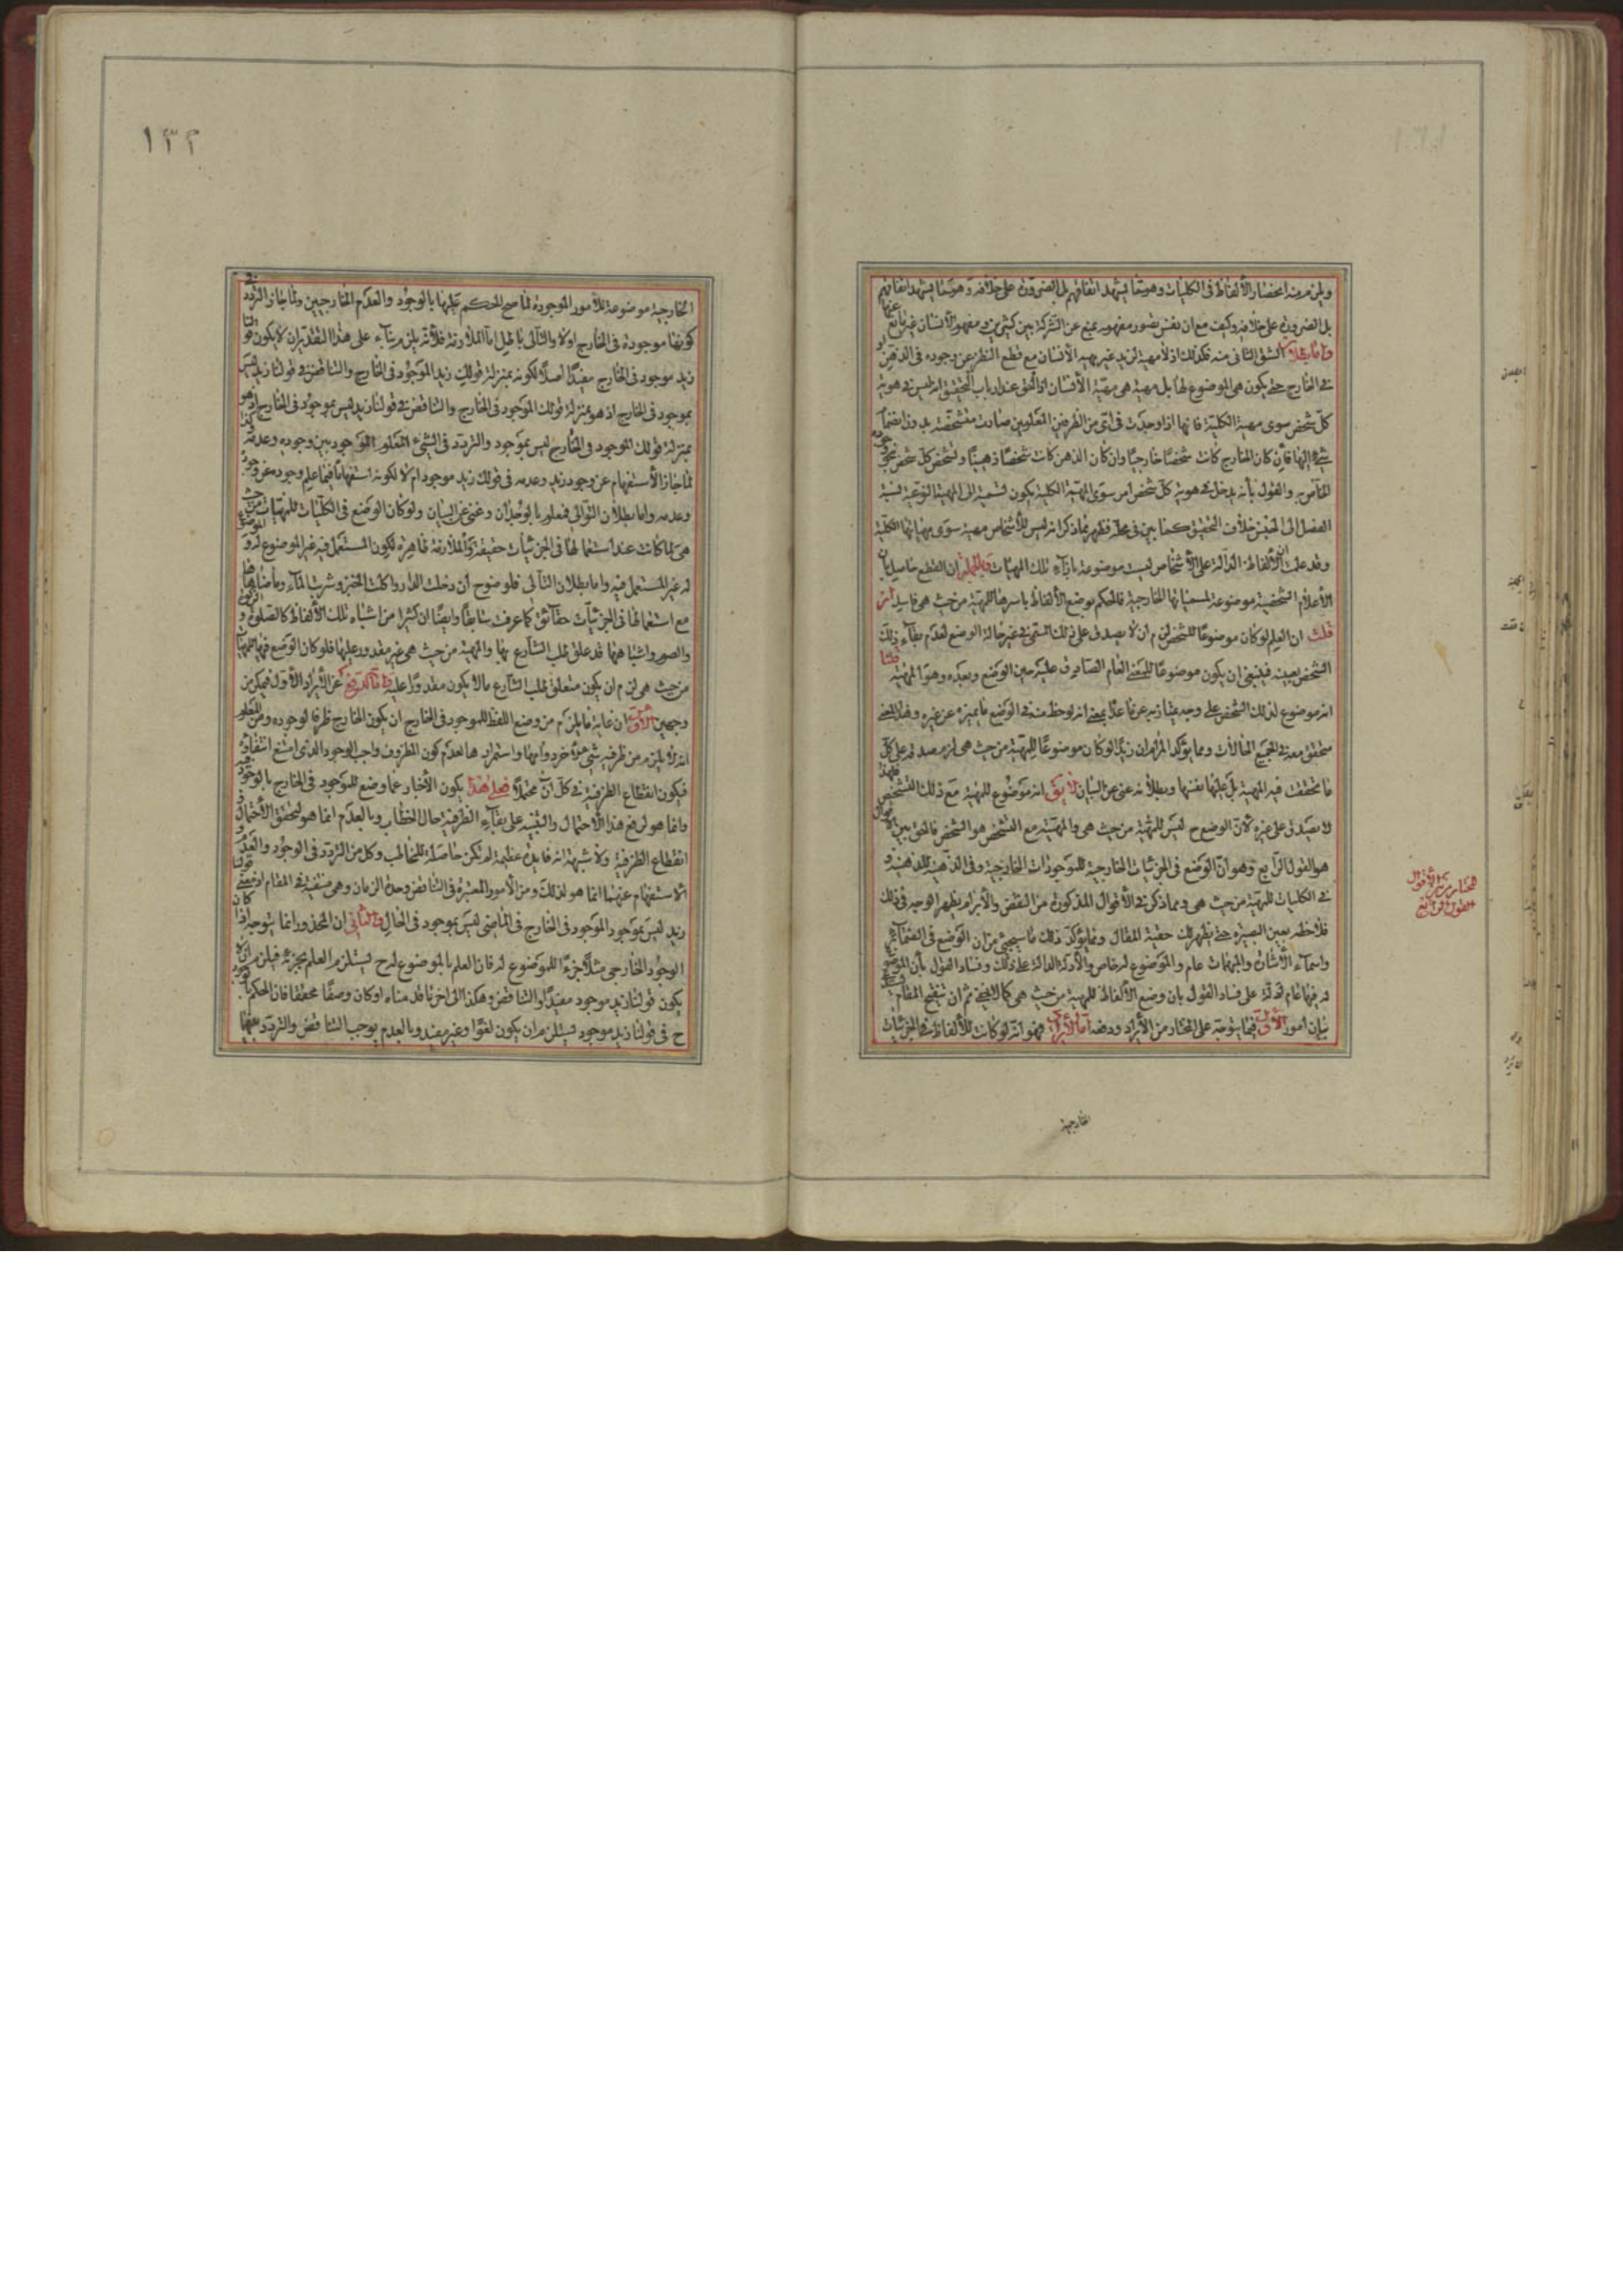 ويلزم منه انحصار الألفاظ فى الكليات وهو مما يشهد اتفاقهم بل الضرورة على خلافه وهو مما يشهد اتفاقهم
بل الضرورة على خلافه وكيف مع ان نفس تصور مفهومه يمنع عن الشركة بين كثيرين ومفهوم الأنسان غير مانع عنها
واما بطلان الشق الثانى منه فكذلك اذ لا مهية لزيد غير مهية الأنسان مع قطع النظر عن وجوده فى الذهن او
فى الخارج حتى يكون هى الموضوع لها بل مهية هى مهية الأنسان اذ الحق عند ارباب التحقيق انه ليس فى هوية
كل شخص سوى مهية الكلية فانها اذا وجدت فى اى من الظرفين المعلومين صارت متشخصة بدون انضمام
شىء اليها فأن كان الخارج كانت شخصًا خارجيًا وان كان الذهن كانت شخصًا ذهنيًا وتشخص كل شخص بنحو وجوده
الخاص به والقول بأنه يدخل فى هوية كل شخص امر سوى المهية الكلية يكون نسبته الى المهية النوعية نسبة
الفصل الى الجنس خلاف التحقيق كما بين فى محله فظهر بما ذكر انه ليس للأشخاص مهية سوى مهياتها الكلية
وقد علمت ان الألفاظ الدالة على الأشخاص ليست موضوعة بازاء تلك المهيات وبالجملة ان القطع حاصل بان
الأعلام الشخصية موضوعة لمسمياتها الخارجية فالحكم بوضع الألفاظ باسرها للمهية من حيث هى فاسد فان
قلت ان العلم لو كان موضوعًا للشخص لزم ان لا يصدق على ذلك المسمى فى غير حالة الوضع لعدم بقاء ذلك
الشخص بعينه فينبغى ان يكون موضوعًا للمعنى العام الصادق عليه حين الوضع وبعده وهو المهية قلنا
انه موضوع لذلك الشخص على وجه يمتاز به عرفا عما يمعنى انه لوحظ منه فى الوضع ما يميزه عن غيره وهذا المعنى
متحقق معه فى جميع الحالات ومما يؤكد المرام ان زيدًا لو كان موضوعًا للمهية من حيث هى لزم صدقه على كل
ما تحققت فيه المهية بل عليها نفسها وبطلانه غنى عن البيان لا يق انه موضوع للمهية مع ذلك التشخص فلهذا
لا يصدق على غيره لأن الوضع ح ليس للمهية من حيث هى والمهية مع التشخص هو الشخص فالحق بين الأقوال
هو القول الرابع وهو ان الوضع فى الجزئيات الخارجية للموجودات الخارجية وفى الذهنية للذهنية و
فى الكليات للمهية من حيث هى ومما ذكر فى الأقوال المذكورة من النقض والأبرام يظهر الوجه فى ذلك
فلاحظه بعين البصيرة حتى يظهر لك حقية المقال ومما يؤكد ذلك ما سيجىء من ان الوضع فى الضمائر
واسماء الأشارة والمبهمات عام والموضوع له خاص والأدلة الدالة على ذلك وفساد القول بأن الموضوع
له فيها عام تدل على فساد القول بان وضع الألفاظ للمهية من حيث هى كما لا يخفى ثم ان تنقيح المقام
ببيان امور الأول فيما يتوجه على المختار من الأيراد ودفعه اما الأيراد فهو انه لو كانت للألفاظ فى الجزئيات
الخارجية
المختار من الأقوال
القول الرابع
١٣٢
الخارجية موضوعة للأمور الموجودة لما صح الحكم عليها بالوجود والعدم الخارجيين ولما جاز التردد فى
كونها موجودة فى الخارج اولا والتالى باطل اما الملازمة فلأنه يلزم بناء على هذا التقدير ان لا يكون قولنا
زيد موجود فى الخارج مفيدًا اصلًا لكونه بمنزلة قولك زيد الموجود فى الخارج والتناقض فى قولنا زيد ليس
بموجود فى الخارج اذ هو بمنزلة قولك الموجود فى الخارج والتناقض فى قولنا زيد ليس بموجود فى الخارج اذ هو
بمنزلة قولك الموجود فى الخارج ليس بموجود والتردد فى الشىء المعلوم الموجود بين وجوده وعدمه
لما جاز الأستفهام عن وجود زيد وعدمه فى قولك زيد موجود ام لا لكونه استفهامًا فيما علم وجوده عن وجوده
وعدمه واما بطلان التوالى فمعلوم بالوجدان وغنى عن البيان ولو كان الوضع فى الكليات للمهيات من حيث
هى لما كانت عند استعمالها فى الجزئيات حقيقة والملازمة ظاهرة لكون المستعمل فيه غير الموضوع له والموضوع
له غير المستعمل فيه واما بطلان التالى فلوضوح ان دخلت الدار واكلت الخبز وشربت الماء وما ضاهاها
مع استعمالها فى الجزئيات حقائق كما عرفت سابقًا وايضًا ان كثيرا من اشباه تلك الألفاظ كالصلوة والزكوة
والصوم واشباهها قد علق طلب الشارع بها والمهية من حيث هى غير مقدور عليها فلو كان الوضع فيها للمهيات
من حيث هى لزم ان يكون متعلق طلب الشارع ما لا يكون مقدورًا عليه واما الدفع عن الأيراد الأول فيمكن من
وجهين الأول ان غاية ما يلزم من وضع اللفظ للموجود فى الخارج ان يكون الخارج ظرفا لوجوده ومن المعلوم
انه لا يلزم من ظرفية شىء لآخر دوامها واستمرارها لعدم كون المظروف واجب الوجود الذى امتنع انتفاؤه
فيكون انقطاع الظرفية فى كل ان محتملًا فعلى هذا يكون الأخبار عما وضع للموجود فى الخارج بالوجود فيه
وانما هو لرفع هذا الأحتمال والتنبيه على بقاء الظرفية حال الخطاب وبالعدم انما هو لتحقق الأحتمال و
انقطاع الظرفية ولا شبهة انه فايدة عظيمة لم تكن حاصلة للمخاطب وكل من التردد فى الوجود والعدم و
الأستفهام عنهما انما هو لذلك ومن الأمور المعتبرة فى التناقض وحدة الزمان وهى منتفية فى المقام اذ معنى قولنا
زيد ليس بموجود الموجود فى الخارج فى الماضى ليس بموجود فى الحال والثانى ان المحذور انما يتوجه اذا كان
الوجود الخارجى مثلًا جزءًا للموضوع له فان العلم بالموضوع له ح يستلزم العلم بجزئه فيلزم ان لا
يكون قولنا زيد موجود مفيدًا والتناقض وهكذا الى اخر ما قدمناه او كان وصفًا محققا فان الحكم بالوجود
ح فى قولنا زيد موجود يستلزم ان يكون لغوًا وغير مفيد وبالعدم يوجب التناقض والتردد بينهما